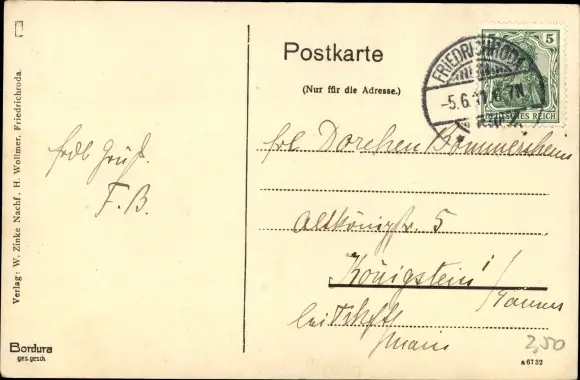 Postkarte
(Nur für die Adresse.)
5
DEUTSCHES REICH
FRIEDRICHRODA
-5.6.11.6-7N
frdl. Gruß.
F. B.
Frl. Dorchen Bommersheim
Altkönigstr. 5
Königstein i/
Taunus
bei Frkft
Main
Verlag: W. Zinke Nachf. H. Wollmer, Friedrichroda.
Bordura
ges. gesch.
a 6732
2,50